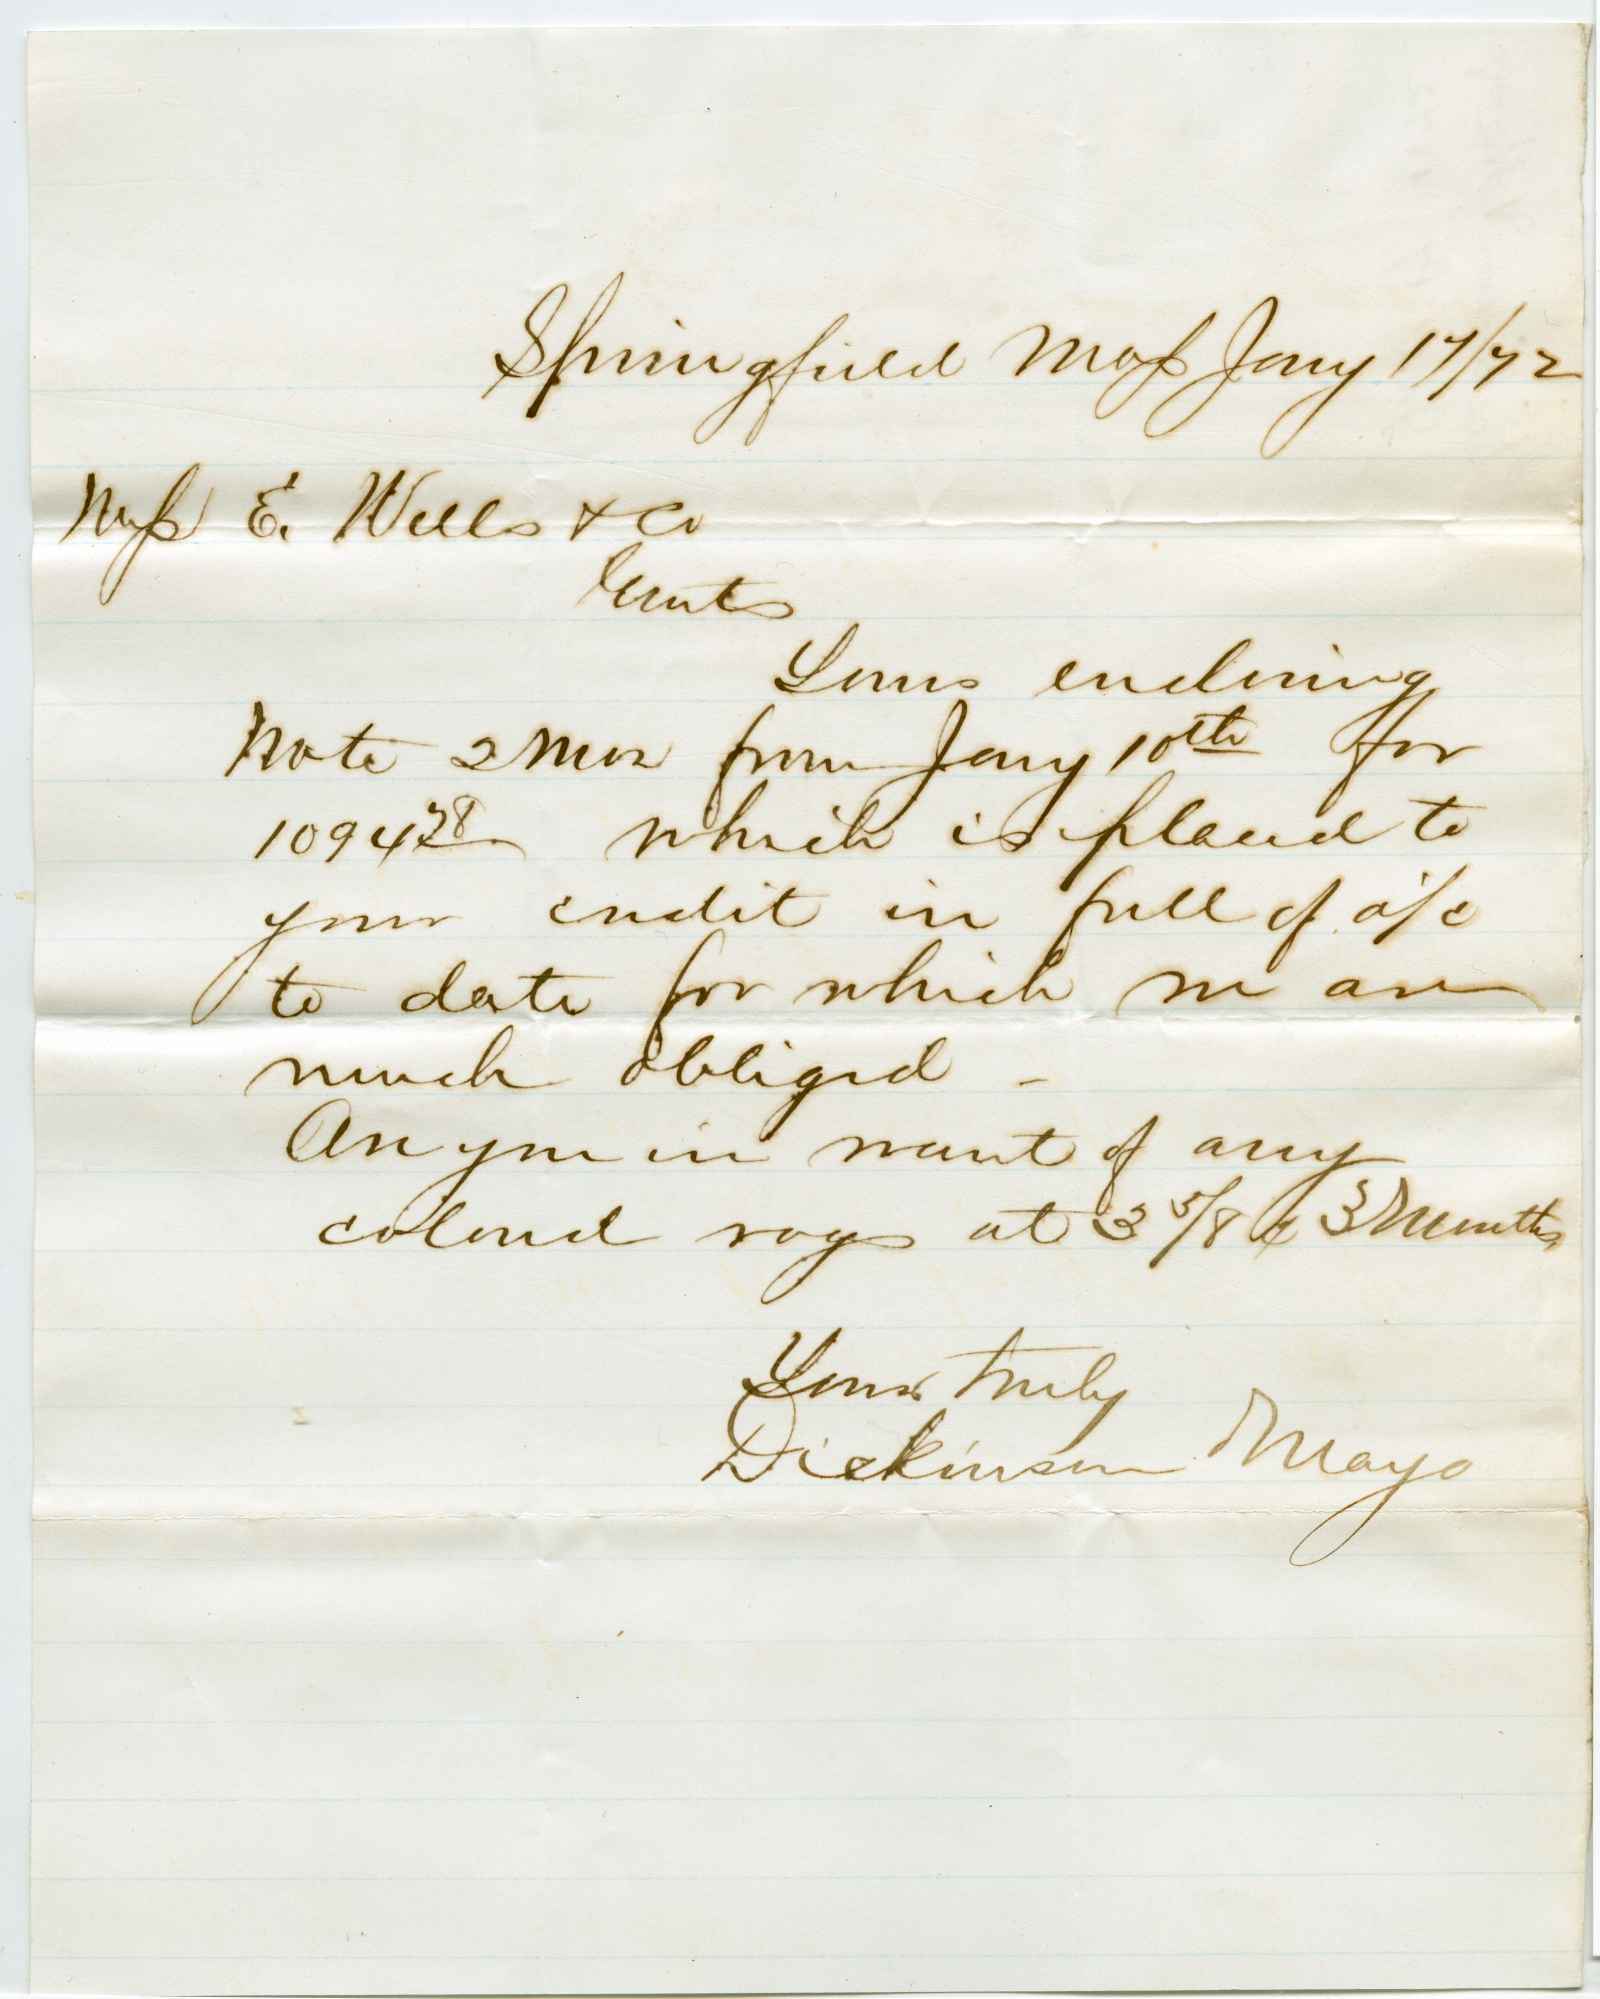 Springfield Mass Jany 17/72
Mess E. Wells & Co
Gents
Yours enclosing
Note 2 Mos from Jany 10th for
1094 28 which is placed to
your credit in full of a/c
to date for which we are
much obliged -
Are you in want of any
colored rags at 3 5/8 c 3 Months
Yours truly
Dickinson & Mayo